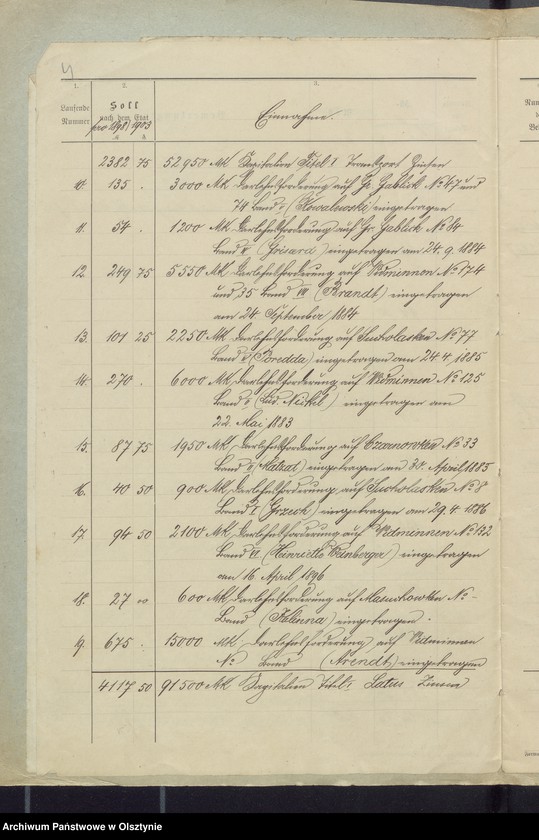 4
1. 2. 3.
Laufende Nummer
Soll
nach dem Etat
pro 1898/1903
M. ₰
Einnahme.
2382 75 52950 Mk Kapitalien Titel I Transport Zinsen
10. 135 . 3000 Mk Darlehnsforderung auf Gr. Gablick No 47 und
74 Band (Kowalewski) eingetragen
11. 54 . 1200 Mk Darlehnsforderung auf Gr. Gablick No 84
Band (Grisard) eingetragen am 24. 9. 1884
12. 249 75 5550 Mk Darlehnsforderung auf Widminnen No 174
und 35 Band VII (Brandt) eingetragen
am 24 September 1884
13. 101 25 2250 Mk Darlehnsforderung auf Sucholasken No 77
Band (Bredda) eingetragen am 24 4. 1885
14. 270 . 6000 Mk Darlehnsforderung auf Widminnen No 125
Band (Lud. Nickel) eingetragen am
22. Mai 1883
15. 87 75 1950 Mk Darlehnsforderung auf Czarnowken No 33
Band eingetragen am 30. April 1885
16. 40 50 900 Mk Darlehnsforderung auf Sucholasken No 8
Band I (Grzech) eingetragen am 29. 4. 1886
17. 94 50 2100 Mk Darlehnsforderung auf Widminnen No 132
Band VI (Henriette Weinberger) eingetragen
am 16. April 1896
18. 27 00 600 Mk Darlehnsforderung auf Masuchowken No -
Band (Kalinna) eingetragen.
19. 675 . 15000 Mk Darlehnsforderung auf Widminnen
No Band (Arendt) eingetragen
4117 50 91500 Mk Kapitalien Titel I Latus Zinsen
Archiwum Państwowe w Olsztynie